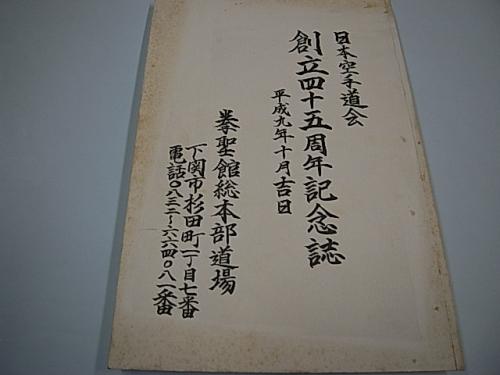 日本空手道会
創立四十五周年記念誌
平成九年十月吉日
拳聖館総本部道場
下関市杉田町一丁目七番
電話〇八三二〜六六四〇八一番